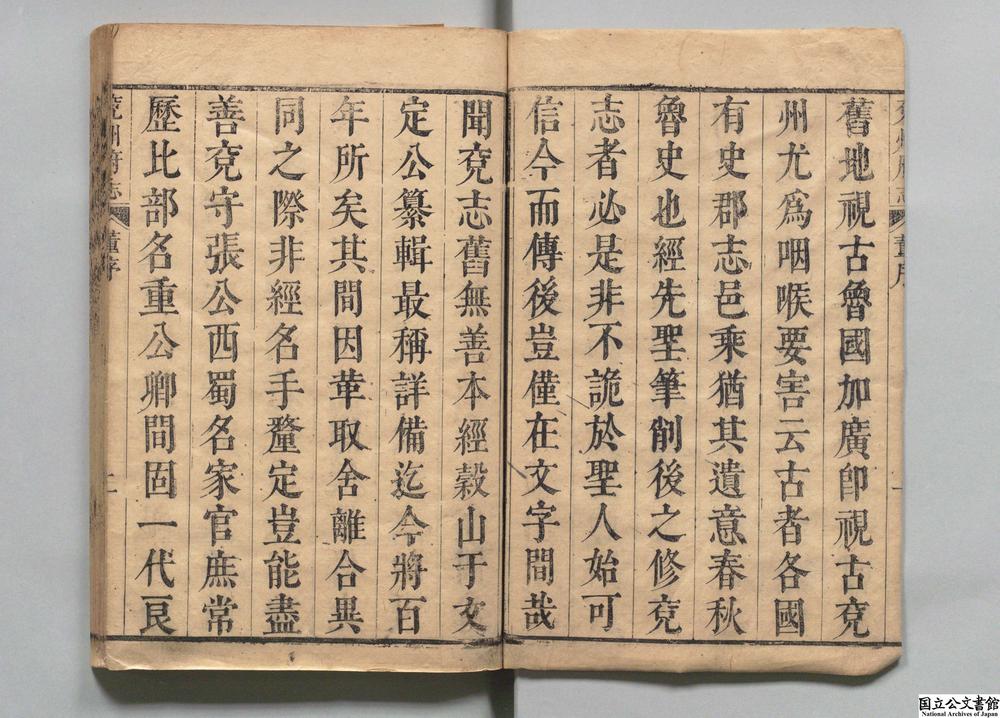 舊地視古魯國加廣卽視古兗
州尤爲咽喉要害云古者各國
有史郡志邑乘猶其遺意春秋
魯史也經先聖筆削後之修兗
志者必是非不詭於聖人始可
信今而傳後豈僅在文字間哉
聞兗志舊無善本經穀山于文
定公纂輯最稱詳備迄今將百
年所矣其間因革取舍離合異
同之際非經名手釐定豈能盡
善兗守張公西蜀名家官庶常
歷比部名重公卿問固一代良
兗州府志
董序
二
国立公文書館
National Archives of Japan